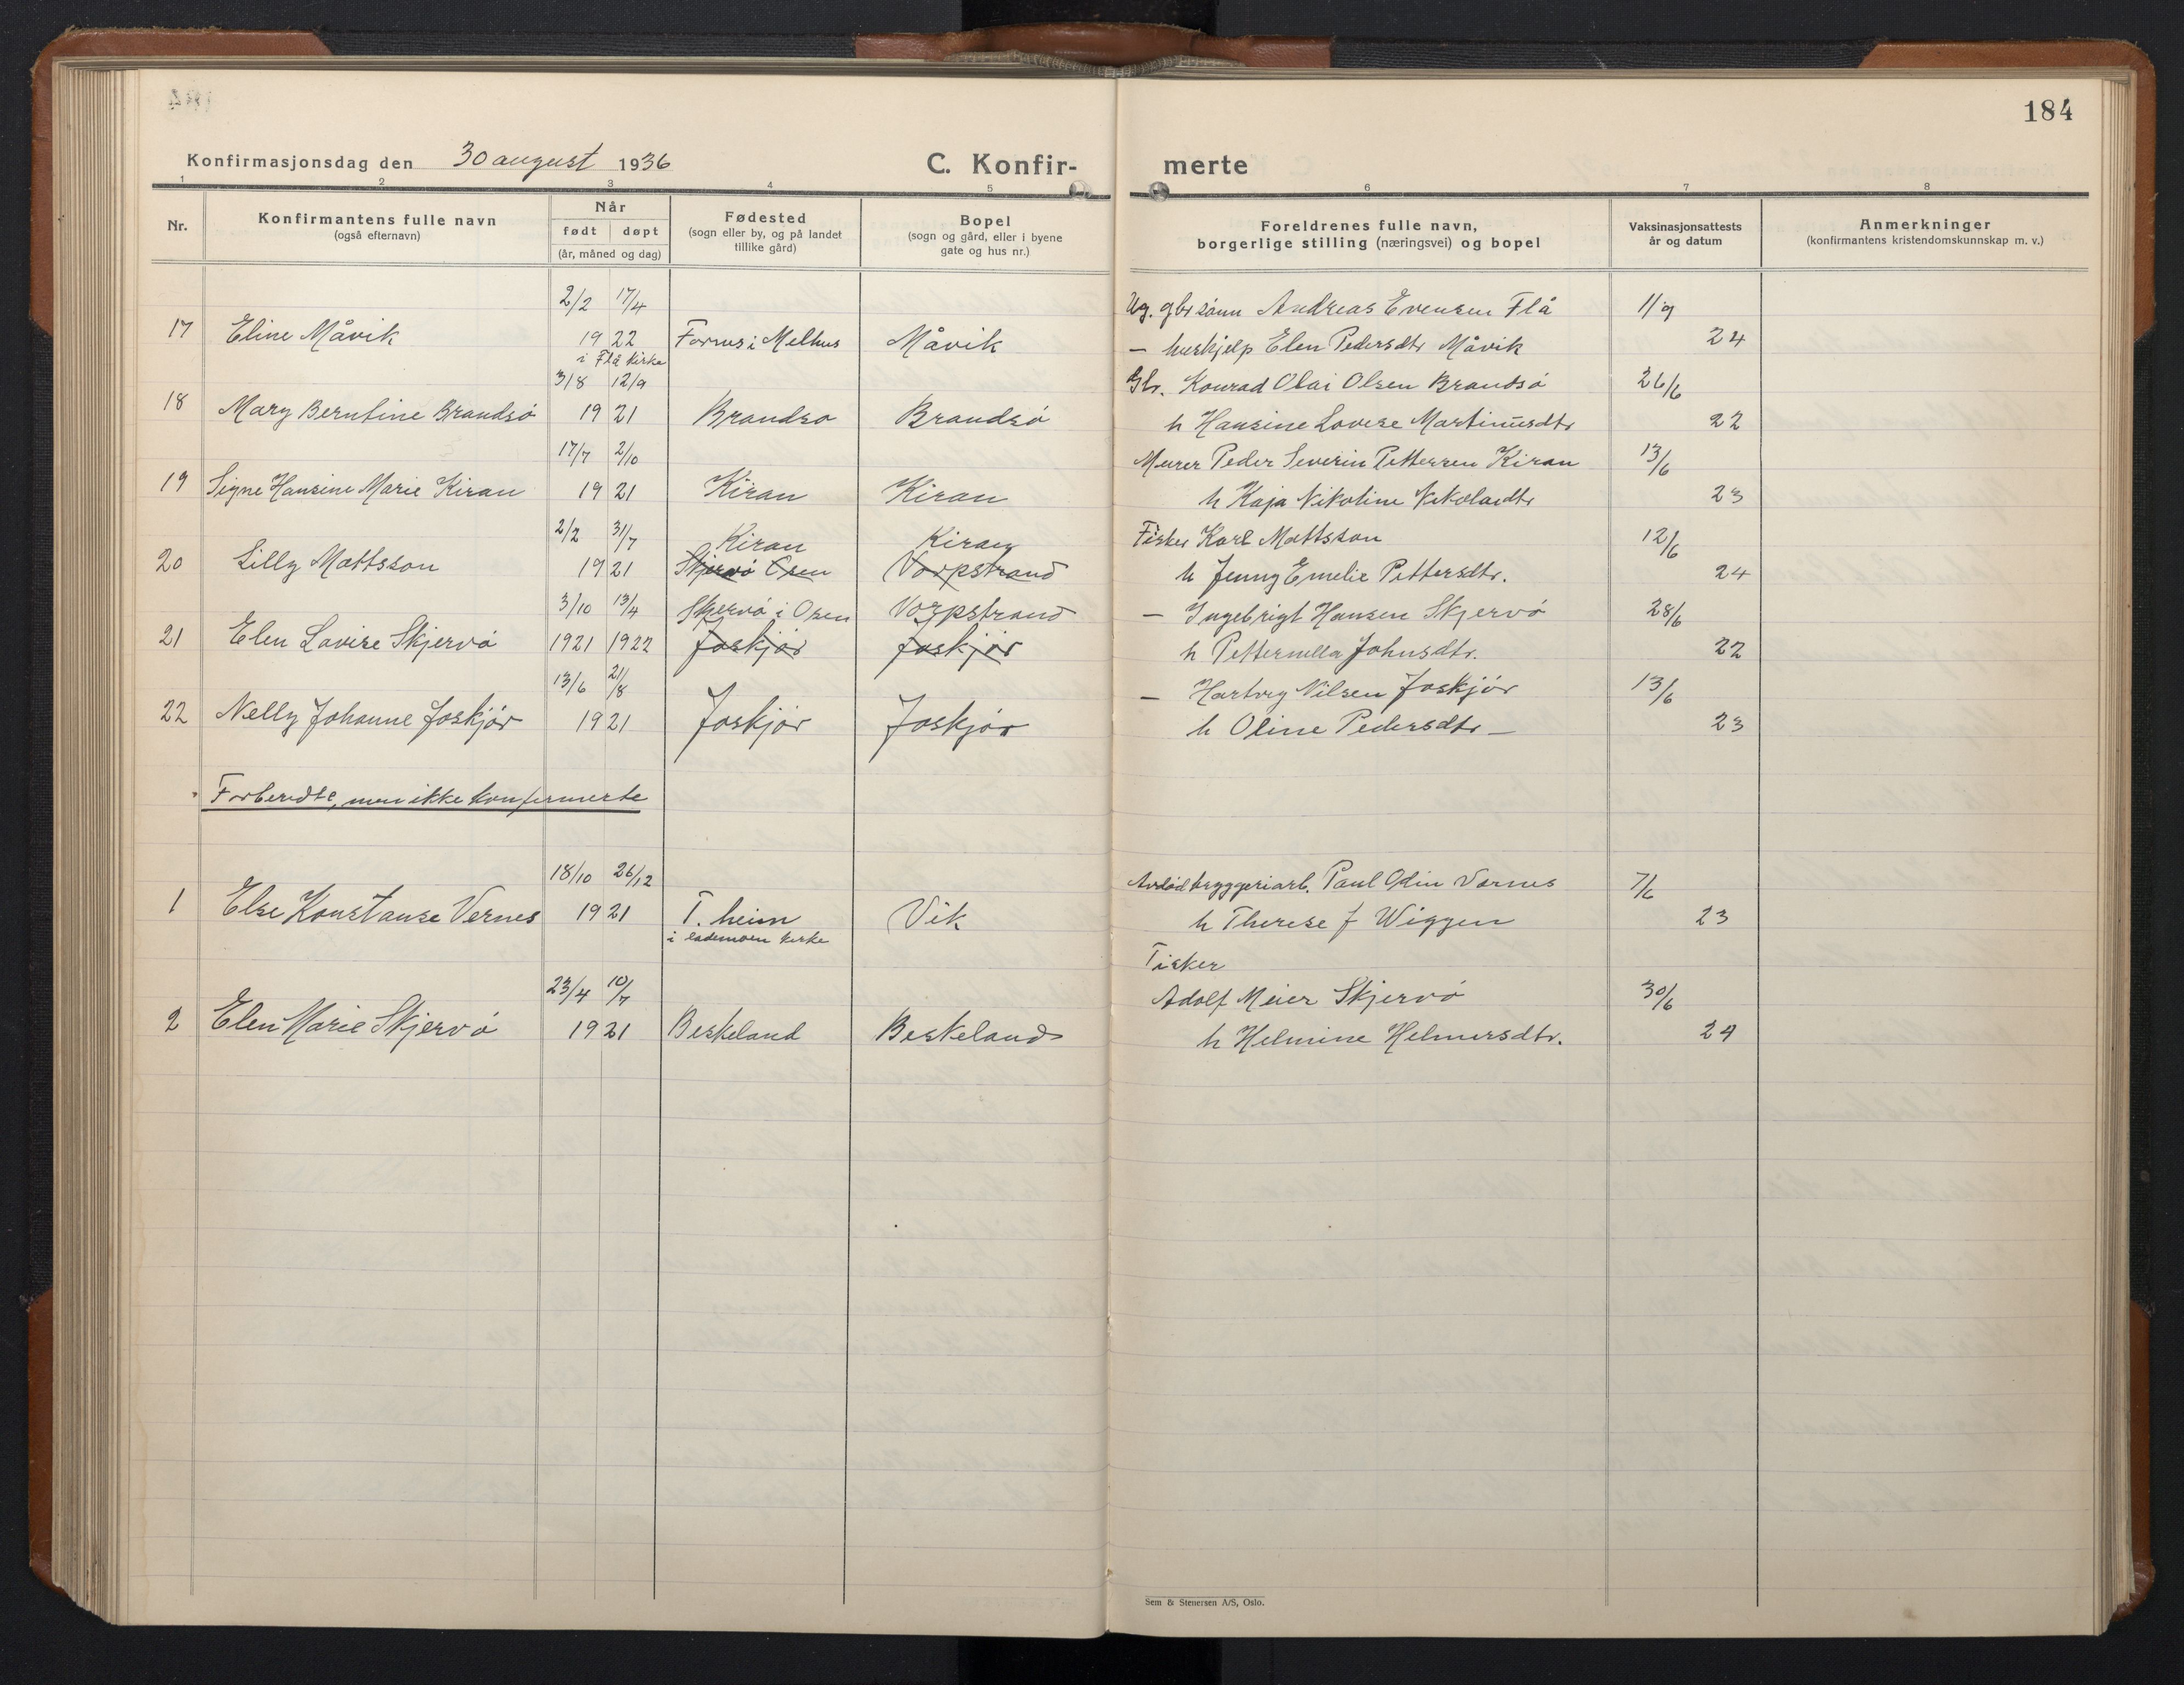 184
Konfirmasjonsdag den 30 august 1936
C. Konfir-
merte
1 2 3 4 5 6 7 8
Nr.
Konfirmantens fulle navn
(også efternavn)
Når
født døpt
(år, måned og dag)
Fødested
(sogn eller by, og på landet
tillike gård)
Bopel
(sogn og gård, eller i byene
gate og hus nr.)
Foreldrenes fulle navn,
borgerlige stilling (næringsvei) og bopel
Vaksinasjonsattests
år og datum
Anmerkninger
(konfirmantens kristendomskunnskap m. v.)
2/2 17/4 Ug. gbr sönn Andreas Evensen Flå 11/9
17 Eline Måvik 19 22 i Melhus Måvik — huskjelp Elen Pedersdtr Måvik 24
i Flå kirke
3/8 12/9 Gbr. Konrad Olai Olsen Brandsö 26/6
18 Mary Berntine Brandsö 19 21 Brandso Brandsö h Hansine Lovise Martinusdtr 22
17/7 2/10 Murer Peder Severin Pettersen Kiran 13/6
19 Signe Hansine Marie Kiran 19 21 Kiran Kiran h Kaja Nikoline Nikolaidtr 23
2/2 31/7 Kiran Kiran Fisker Karl Mattsson 12/6
20 Lilly Mattsson 19 21 Skjervö Osen Vorpstrand h Jenny Emelie Pettersdtr. 24
3/10 13/4 Skjervö i Osen Vorpstrand — Ingebrigt Hansen Skjervö 28/6
21 Elen Lovise Skjervö 1921 1922 Joskjör Joskjör h Petternella Johnsdtr. 22
13/6 21/8 — Hartvig Nilsen Joskjör 13/6
22 Nelly Johanne Joskjör 19 21 Joskjör Joskjör h Oline Pedersdtr — 23
Forberedte, men ikke konfirmerte
18/10 26/12 Avdöd bryggeriarb. Paul Odin Vernes 7/6
1 Else Konstanse Vernes 19 21 T. heim Vik h Therese J Wiggen 23
i lademoen kirke
Fisker
23/4 10/7 Adolf Meier Skjervö 30/6
2 Elen Marie Skjervö 19 21 Beskeland Beskeland h Helmine Helmersdtr. 24
Sem & Stenersen A/S, Oslo.